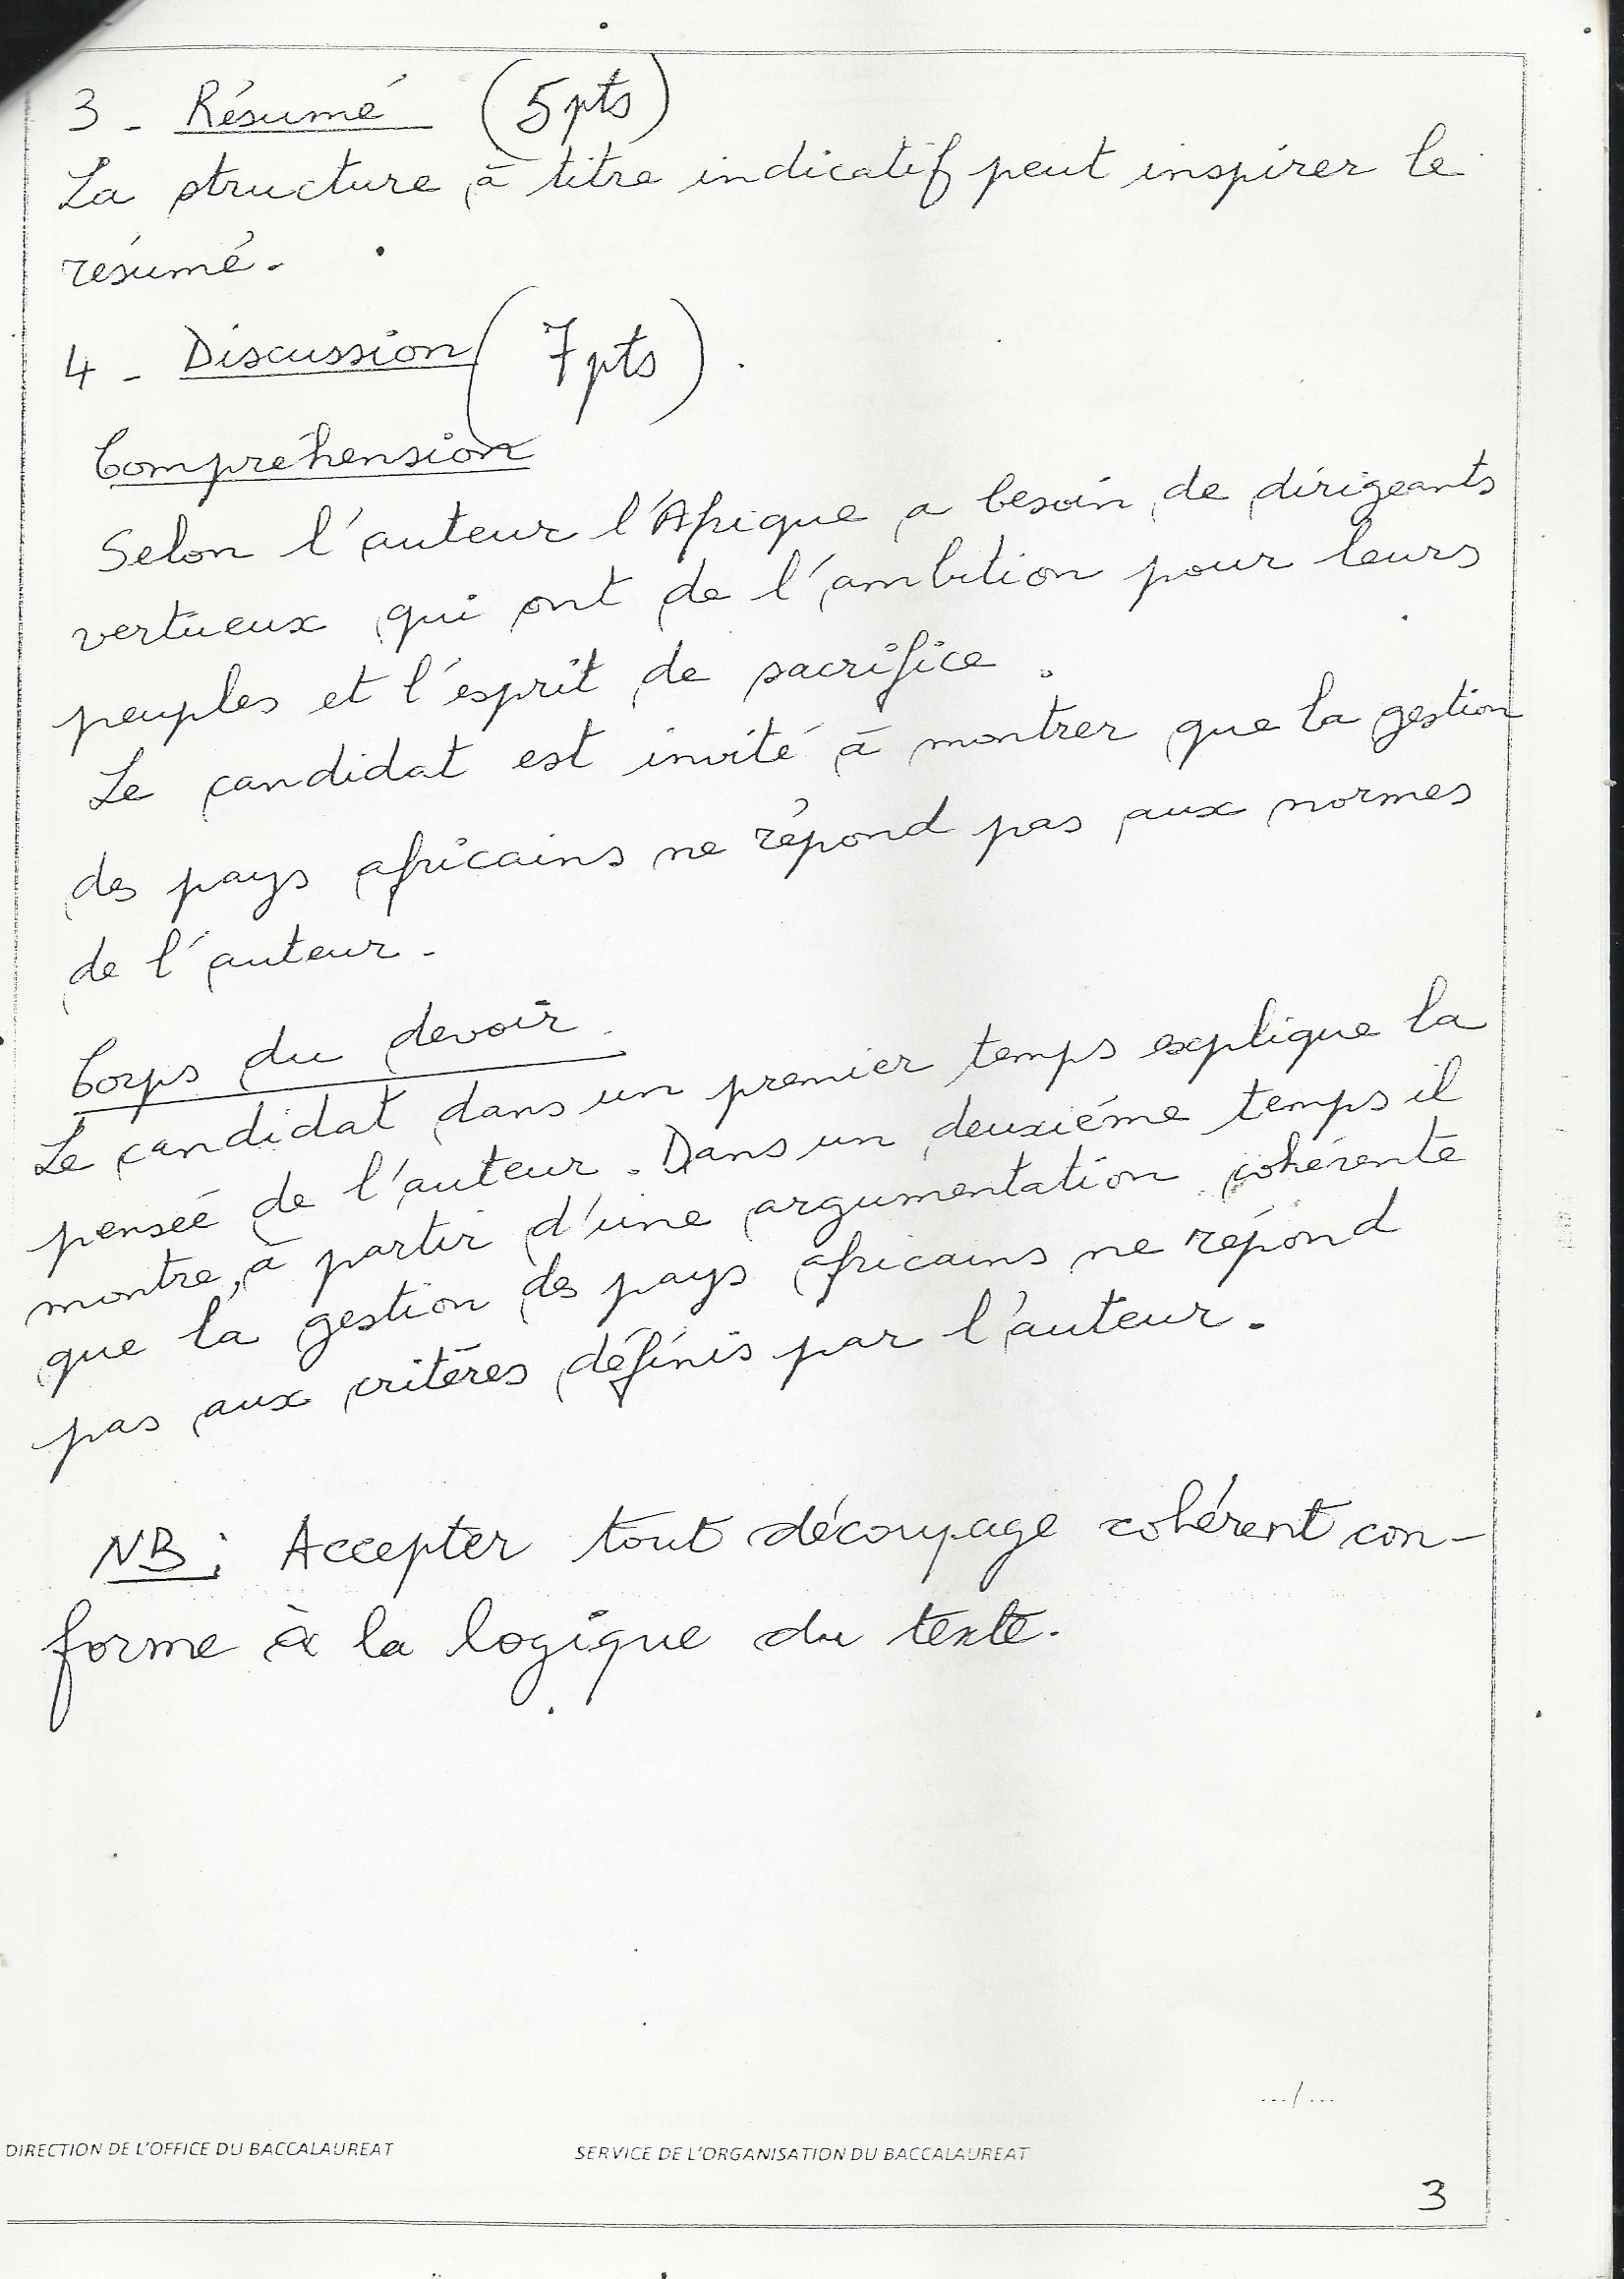 3 - Résumé (5pts)
La structure à titre indicatif peut inspirer le
résumé.
4 - Discussion (7pts).
Compréhension
Selon l'auteur l'Afrique a besoin de dirigeants
vertueux qui ont de l'ambition pour leurs
peuples et l'esprit de sacrifice.
Le candidat est invité à montrer que la gestion
des pays africains ne répond pas aux normes
de l'auteur.
Corps du devoir.
Le candidat dans un premier temps explique la
pensée de l'auteur. Dans un deuxième temps il
montre, à partir d'une argumentation cohérente
que la gestion des pays africains ne répond
pas aux critères définis par l'auteur.
NB : Accepter tout découpage cohérent con-
forme à la logique du texte.
.../...
DIRECTION DE L'OFFICE DU BACCALAUREAT SERVICE DE L'ORGANISATION DU BACCALAUREAT
3